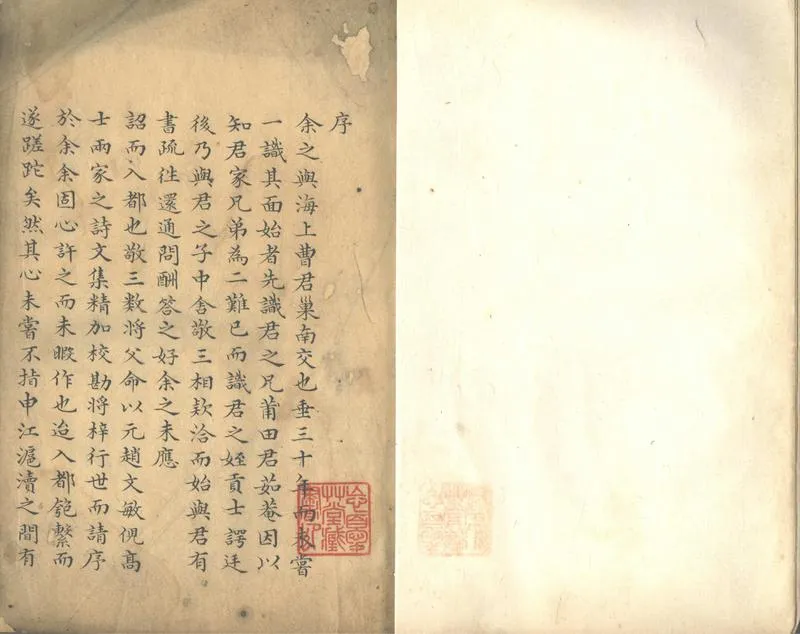 序
余之與海上曹君巢南交也垂三十年而未嘗
一識其面始者先識君之兄莆田君茹菴因以
知君家兄弟為二難已而識君之姪貢士諤廷
後乃與君之子中舍敬三相欵洽而始與君有
書疏徃還通問酬答之好余之未應
詔而入都也敬三數將父命以元趙文敏倪高
士兩家之詩文集精加校勘將梓行世而請序
於余余固心許之而未暇作也迨入都匏繫而
遂蹉跎矣然其心未嘗不指申江滬瀆之間有